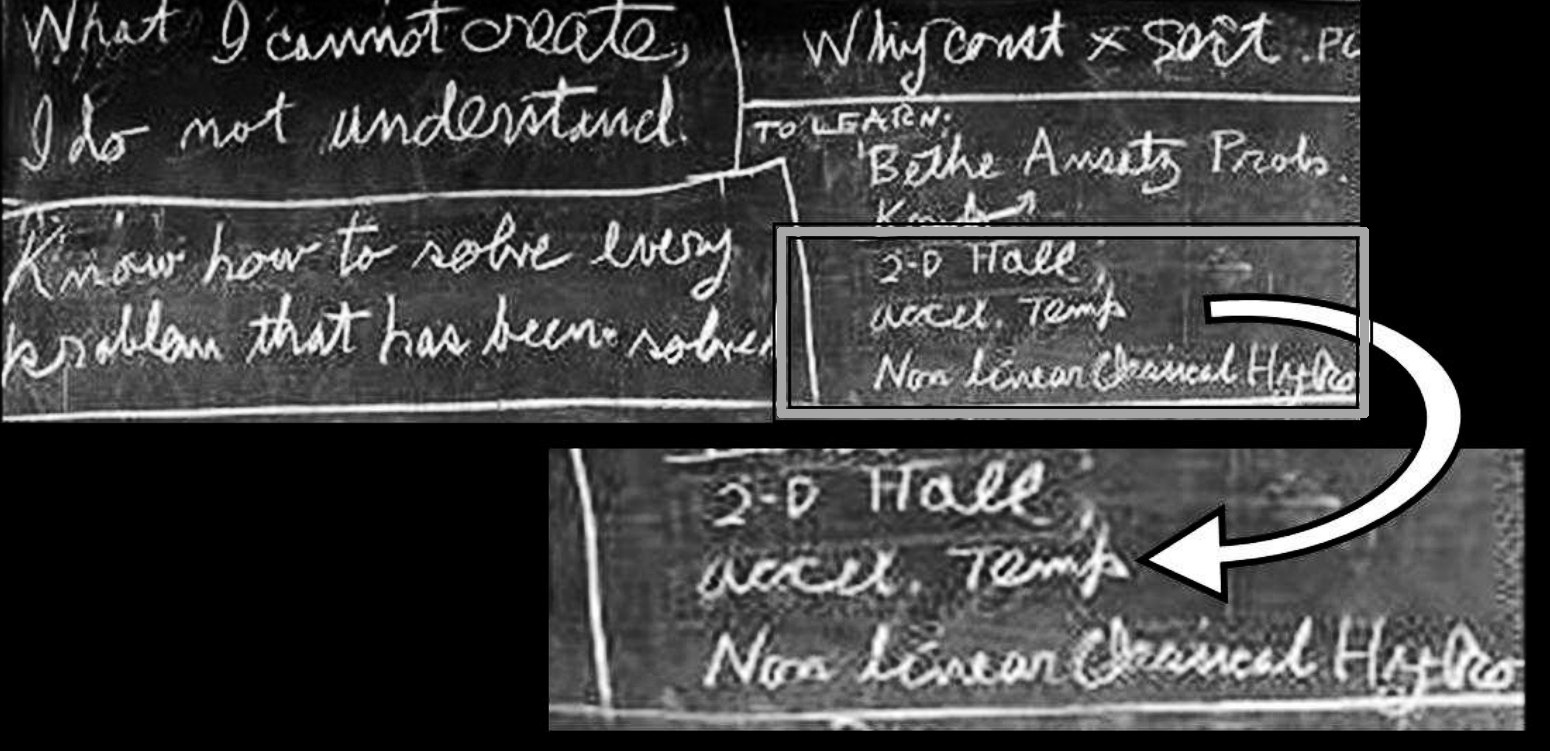 What I cannot create,
I do not understand.
Know how to solve every
problem that has been solved
Why const × sort . PO
TO LEARN:
Bethe Ansatz Probs.
Kondo
2-D Hall
accel. Temp
Non linear Classical Hydro
2-D Hall
accel. Temp
Non linear Classical Hydro